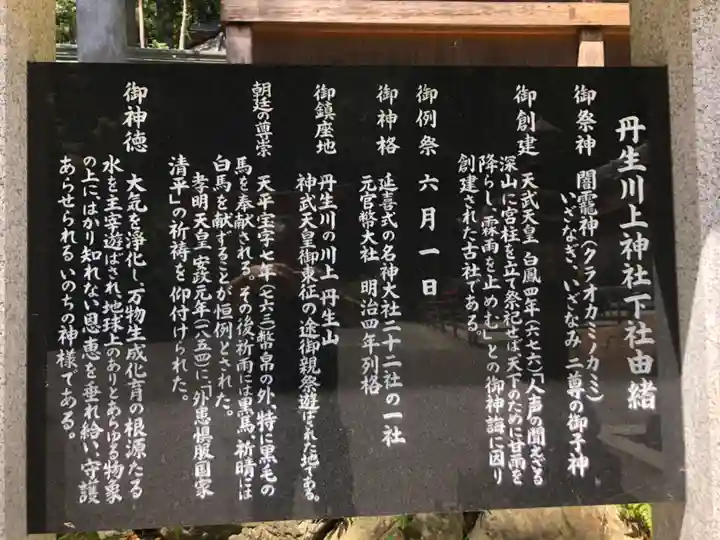 丹生川上神社下社由緒
御祭神 闇龗神(クラオカミノカミ)
いざなぎ、いざなみ 二尊の御子神
御創建 天武天皇 白鳳四年(六七六)「人声の聞えざる
深山に宮柱を立て祭祀せば天下のために甘雨を
降らし、霖雨を止めむ」との御神誨に因り
創建された古社である。
御例祭 六月一日
御神格 延喜式の名神大社二十二社の一社
元官幣大社 明治四年列格
御鎮座地 丹生川の川上 丹生山
神武天皇御東征の途御親祭遊ばされた地である。
朝廷の尊崇 天平宝字七年(七六三)幣帛の外、特に黒毛の
馬を奉献される。その後祈雨には黒馬、祈晴には
白馬を献ずることが恒例とされた。
孝明天皇 安政元年(一八五四)に、「外患惧服国家
清平」の祈祷を仰付けられた。
御神徳 大気を浄化し、万物生成化育の根源たる
水を主宰遊ばされ、地球上のありとあらゆる物象
の上にはかり知れない恩恵を垂れ給い、守護
あらせられる いのちの神様である。